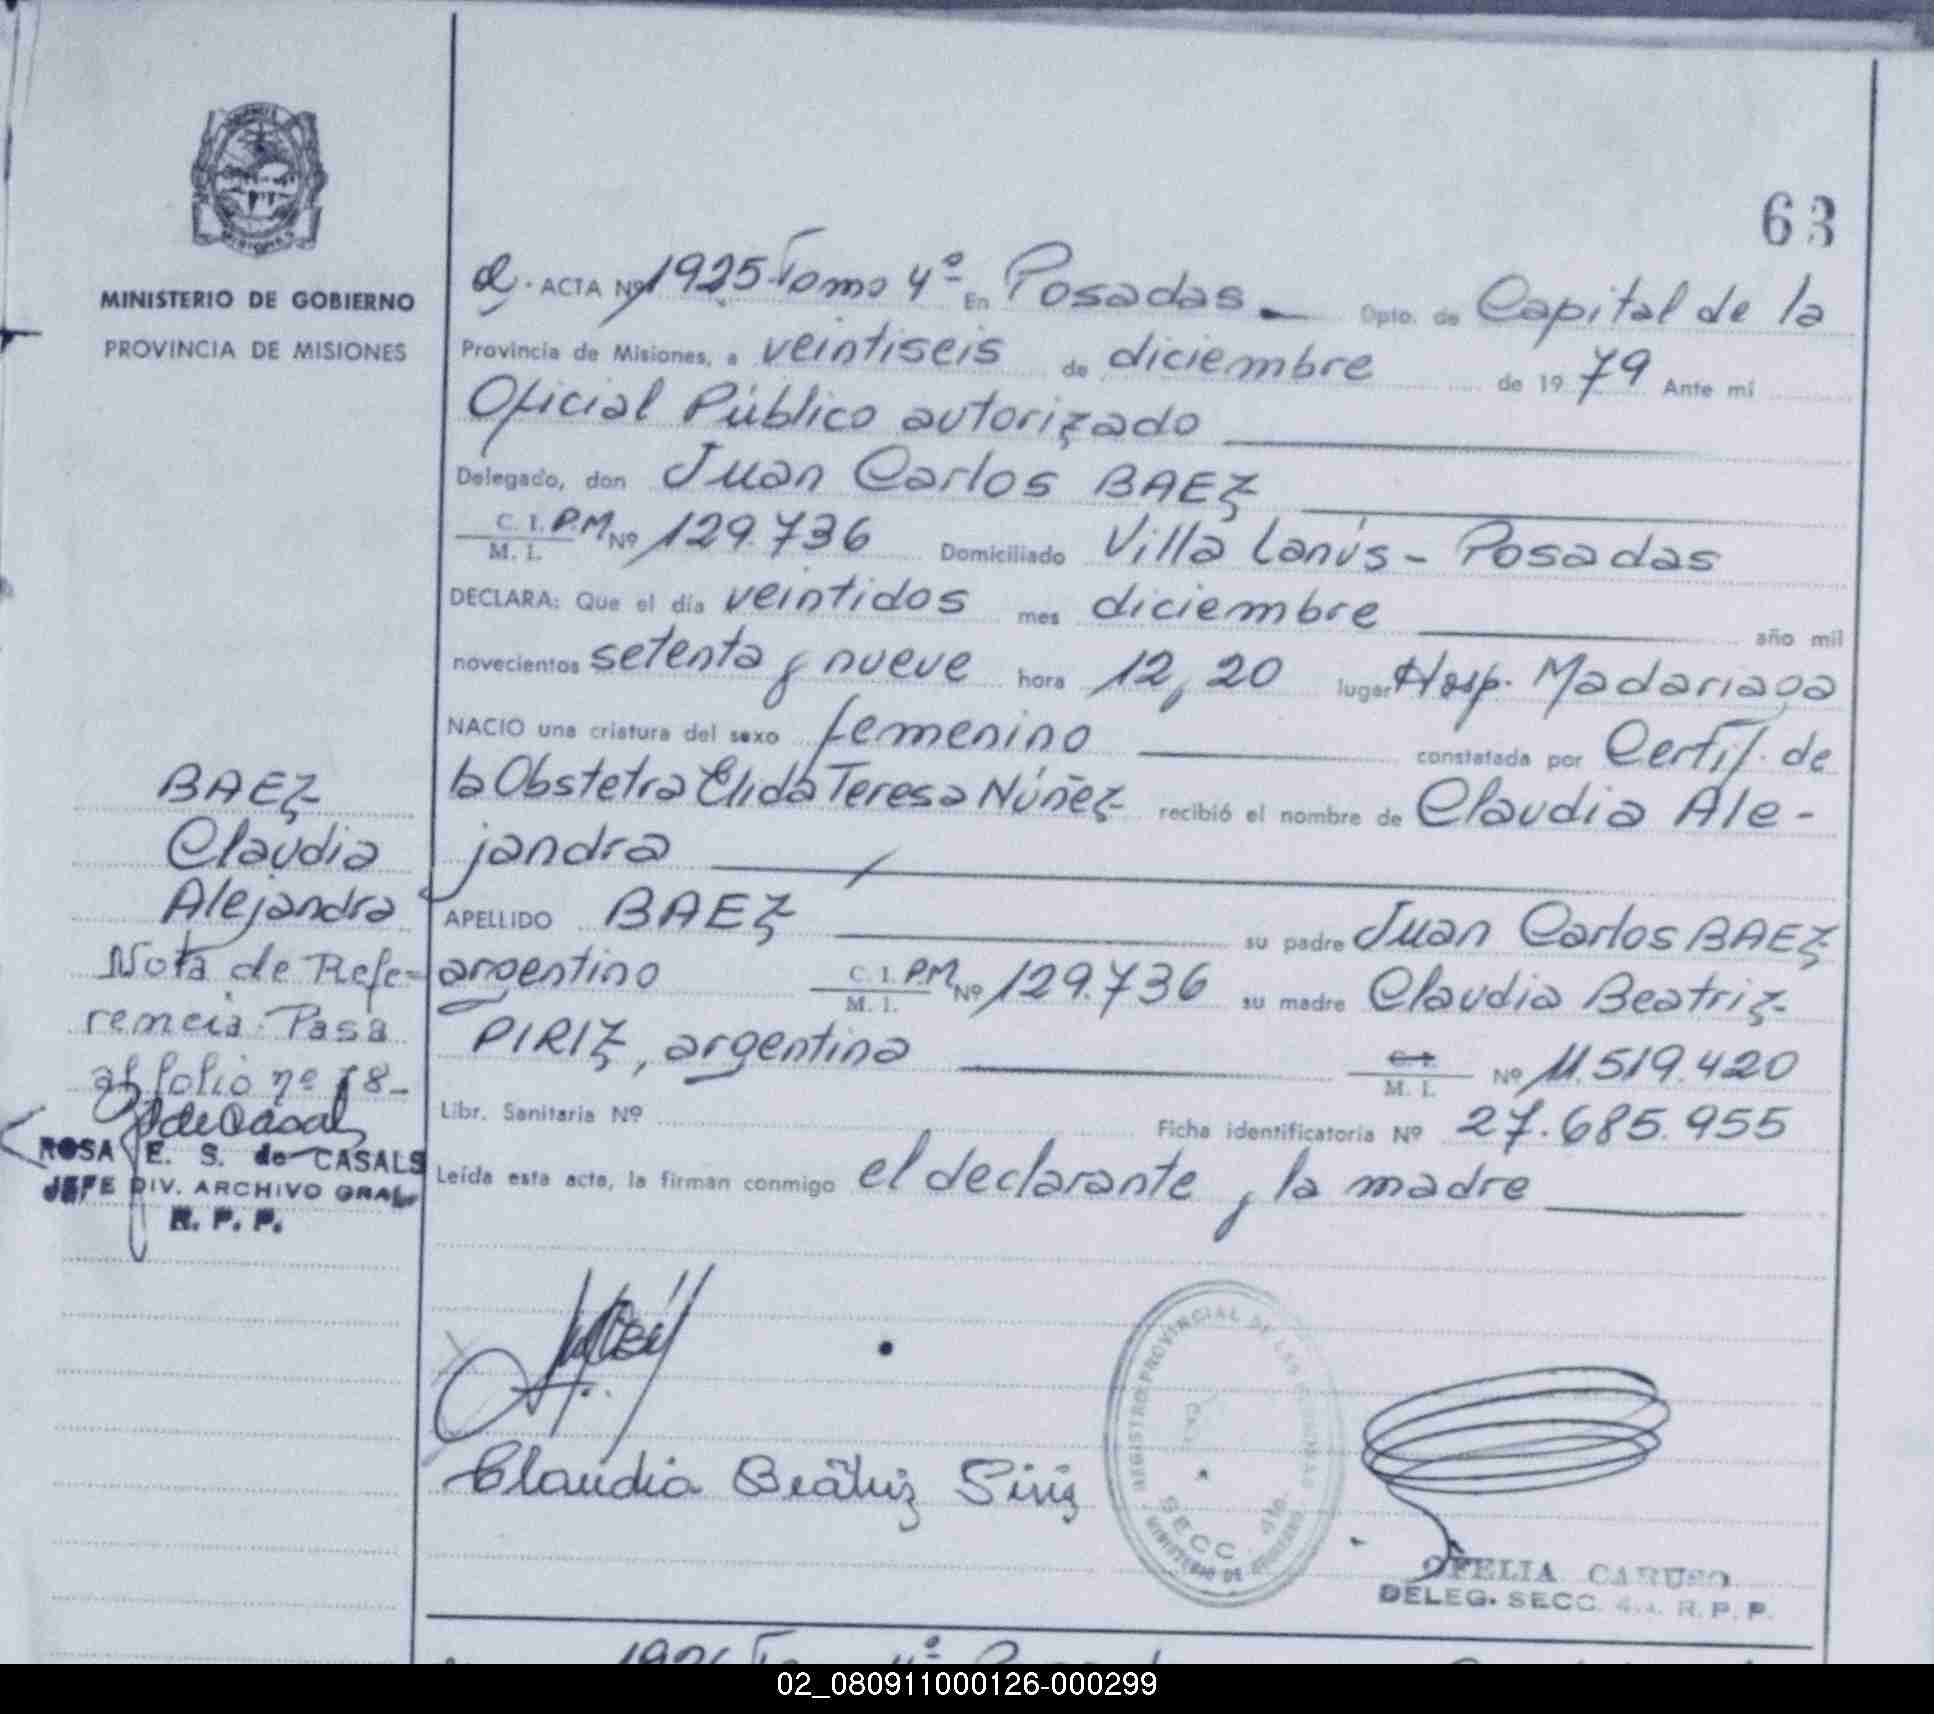 63
MINISTERIO DE GOBIERNO
PROVINCIA DE MISIONES
ACTA Nº 1925 Tomo 4º En Posadas Dpto. de Capital de la
Provincia de Misiones, a veintiseis de diciembre de 1979 Ante mí
Oficial Público autorizado
Delegado, don Juan Carlos BAEZ
C. I. P.M Nº 129.736 Domiciliado Villa Lanús - Posadas
M. I.
DECLARA: Que el día veintidos mes diciembre año mil
novecientos setenta y nueve hora 12,20 lugar Hosp. Madariaga
NACIO una criatura del sexo femenino constatada por Certif. de
la Obstetra Elida Teresa Núñez recibió el nombre de Claudia Ale-
jandra
APELLIDO BAEZ su padre Juan Carlos BAEZ
argentino C. I. P.M Nº 129.736 su madre Claudia Beatriz
M. I.
PIRIZ, argentina C. I. Nº 11.519.420
M. I.
Libr. Sanitaria Nº Ficha identificatoria Nº 27.685.955
Leída esta acta, la firman conmigo el declarante y la madre
BAEZ
Claudia
Alejandra
Nota de Refe-
rencia: Pasa
al folio nº 78-
ROSA E. S. de CASALS
JEFE DIV. ARCHIVO GRAL
R. P. P.
Claudia Beatriz Piriz
REGISTRO PROVINCIAL DE LAS PERSONAS
SECC. 4ta.
MINISTERIO DE GOBIERNO
OFELIA CARUSO
DELEG. SECC. 4.a. R. P. P.
02_080911000126-000299